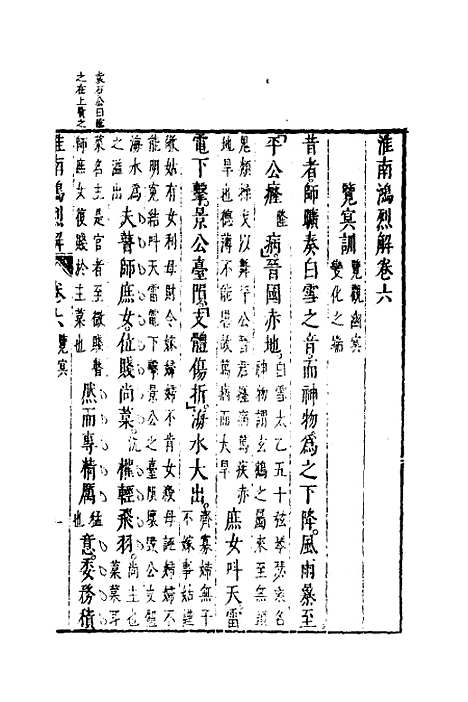 淮南鴻烈解卷六
覽冥訓覽觀幽冥變化之端
昔者師曠奏白雪之音而神物爲之下降風雨暴至
平公癃隆病晉國赤地白雪太乙五十弦琴瑟樂名神物謂玄鶴之屬來至無頭
鬼類操戈以舞平公晉君癃病篤疾赤地旱也德薄不能故篤病而大旱庶女叫天雷
電下擊景公臺隕支體傷折海水大出齊寡婦無子不嫁事姑謹
敬姑有女利母財令嫁婦婦不肯女殺母誣婦婦不能明冤結叫天雷電下擊景公之臺隕壞毀公支體
海水爲之溢出夫瞽師庶女位賤尚菜權輕飛羽尚主也菜菜耳
菜名主是官者至微賤瞽師庶女復賤於主菜也然而專精厲猛也意委務積
淮南鴻烈解
卷六覽冥
一
袁石公曰
之在上賢之